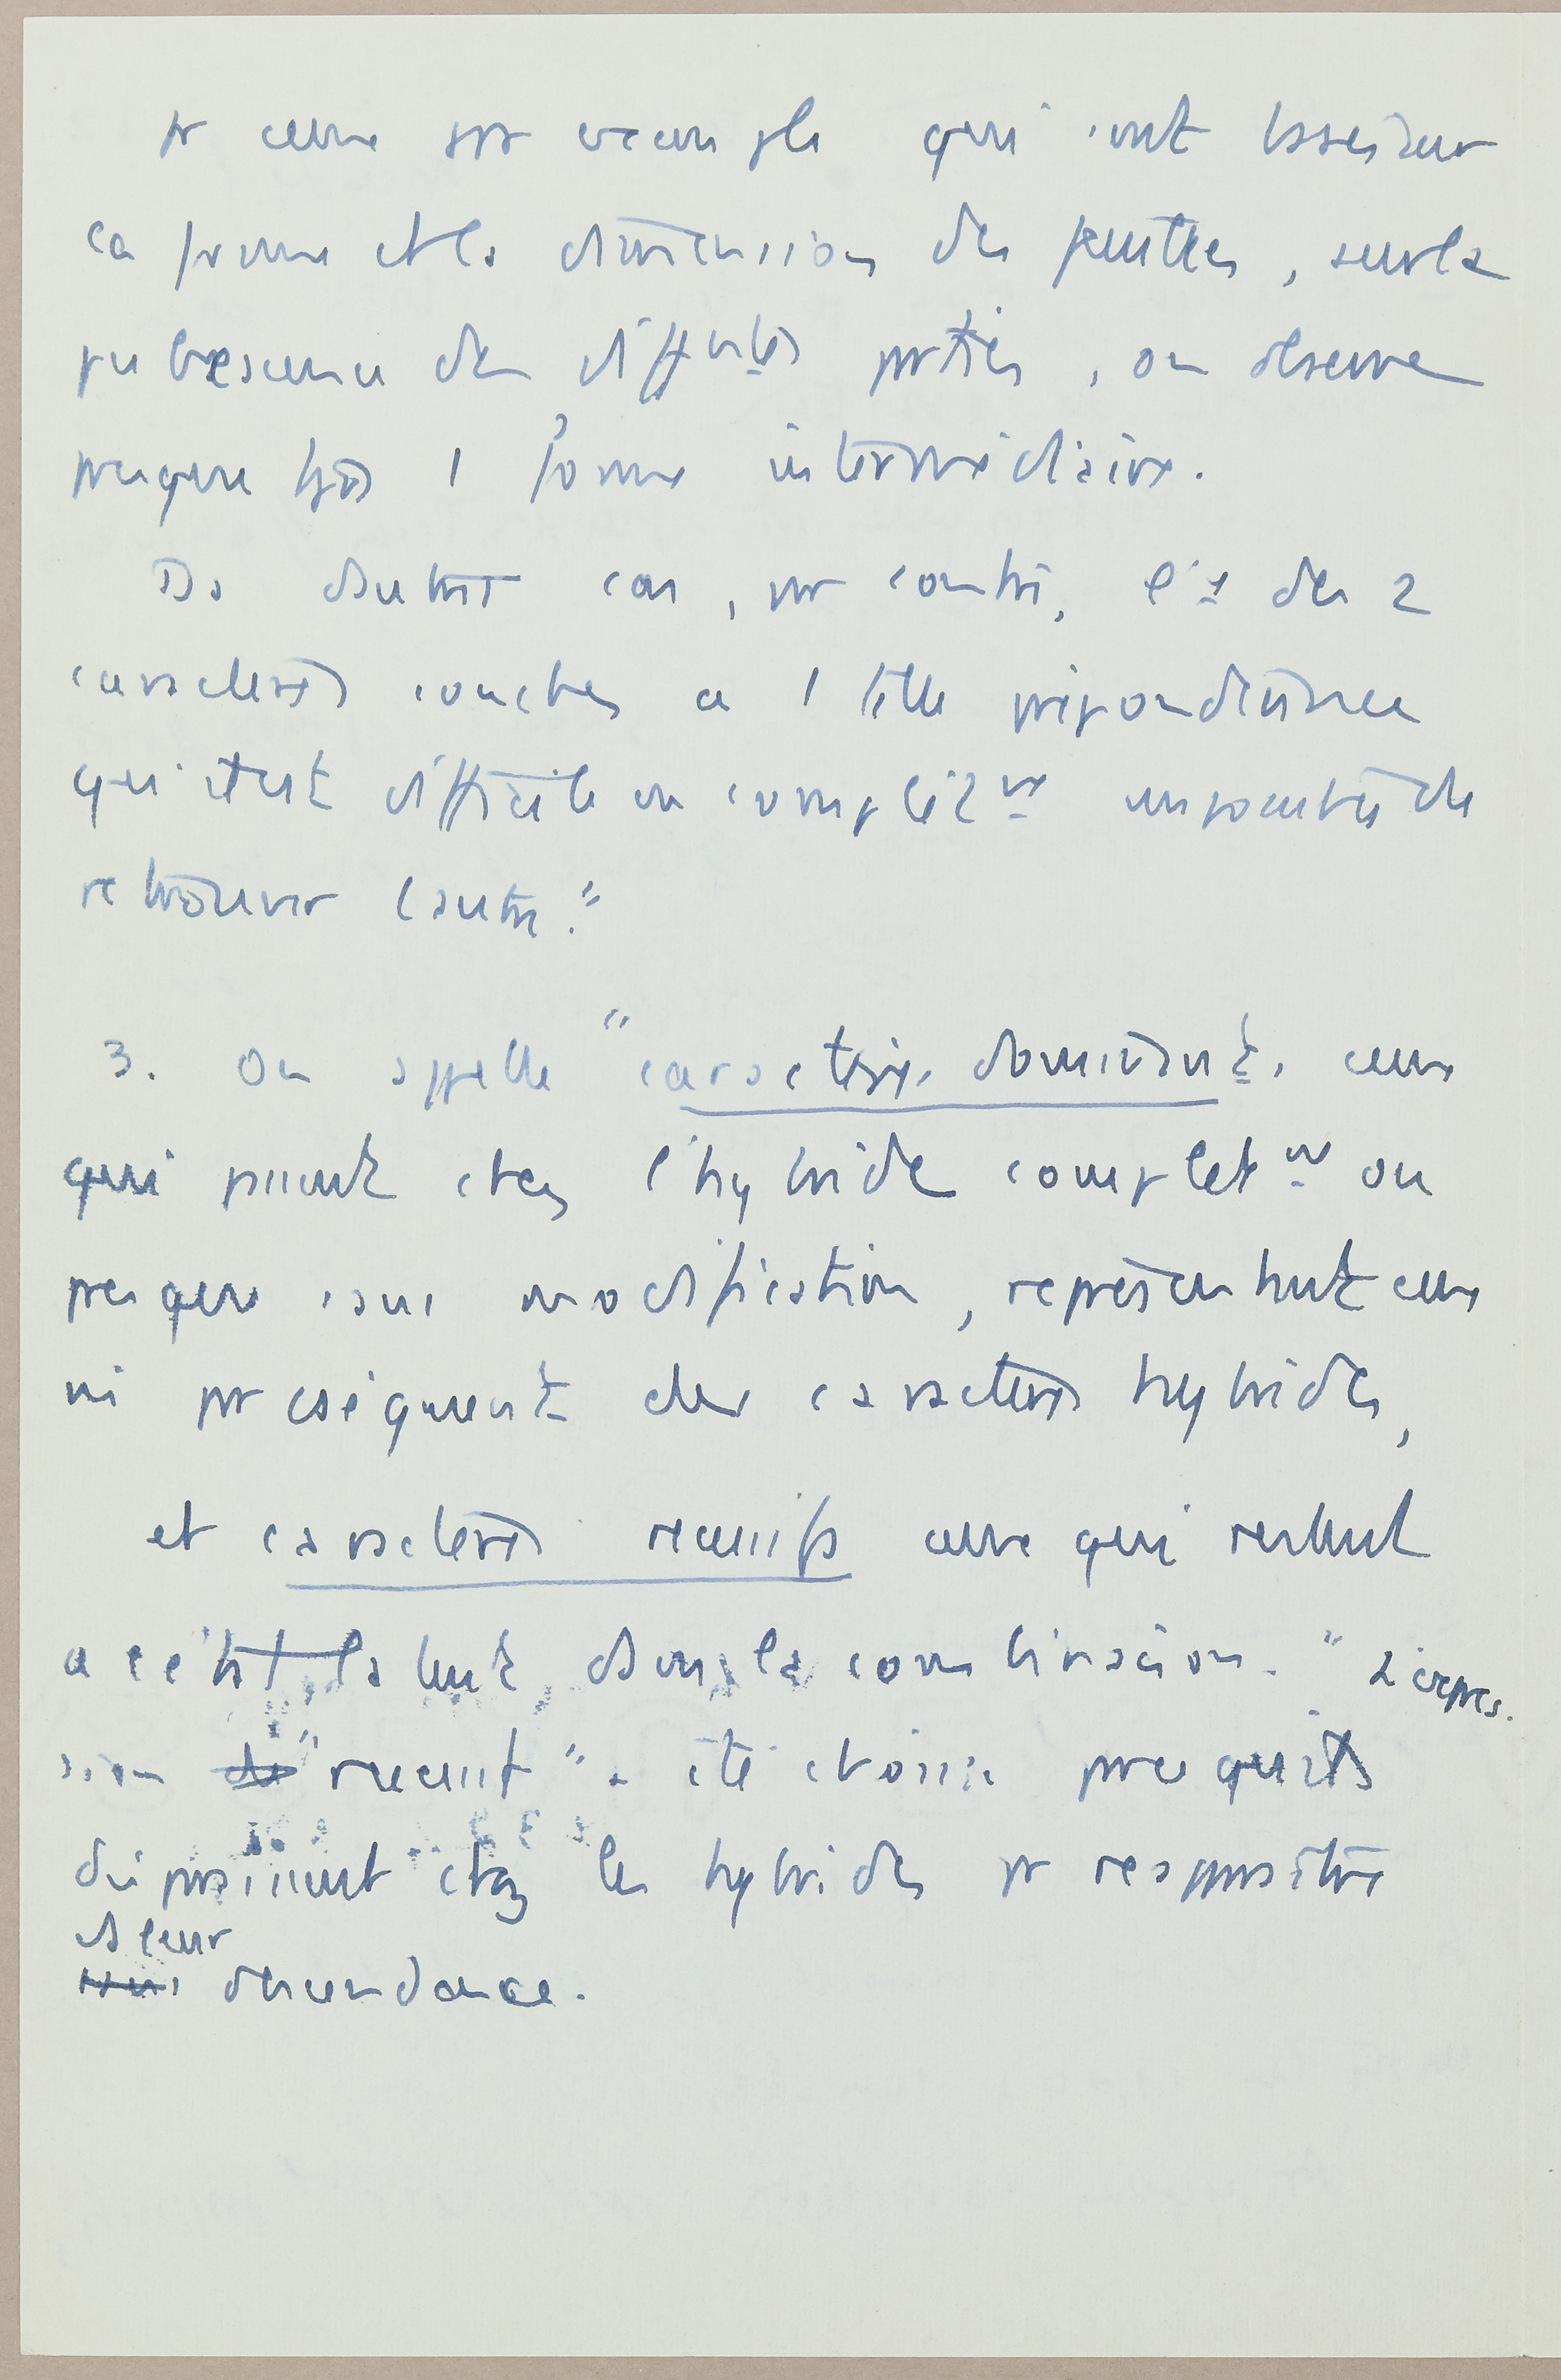 pr ceux par exemple qui sont basés sur
la forme et les dimensions des feuilles, sur la
pubescence des diff^entes parties, on observe
presque tjrs 1 forme intermédiaire.
Ds d'autres cas, par contre, l'1 des 2
caractères couchés a 1 telle prépondérance
qu'il est difficile ou complèt^nt impossible de
retrouver l'autre."
3. On appelle "caractères dominants, ceux
qui passent chez l'hybride complet^nt ou
presque sans modification, représentant eux
mêmes par conséquent des caractères hybrides,
et caractères récessifs ceux qui restent
à l'état latent dans la combinaison." L'expres-
sion "récessif" a été choisie parce qu'ils
disparaissent chez les hybrides pr réapparaître
ds leur
descendance.